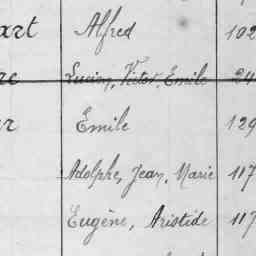 art Alfred 102
re Lucien, Victor, Emile 24
er Emile 129
Adolphe, Jean, Marie 117
Eugène, Aristide 117